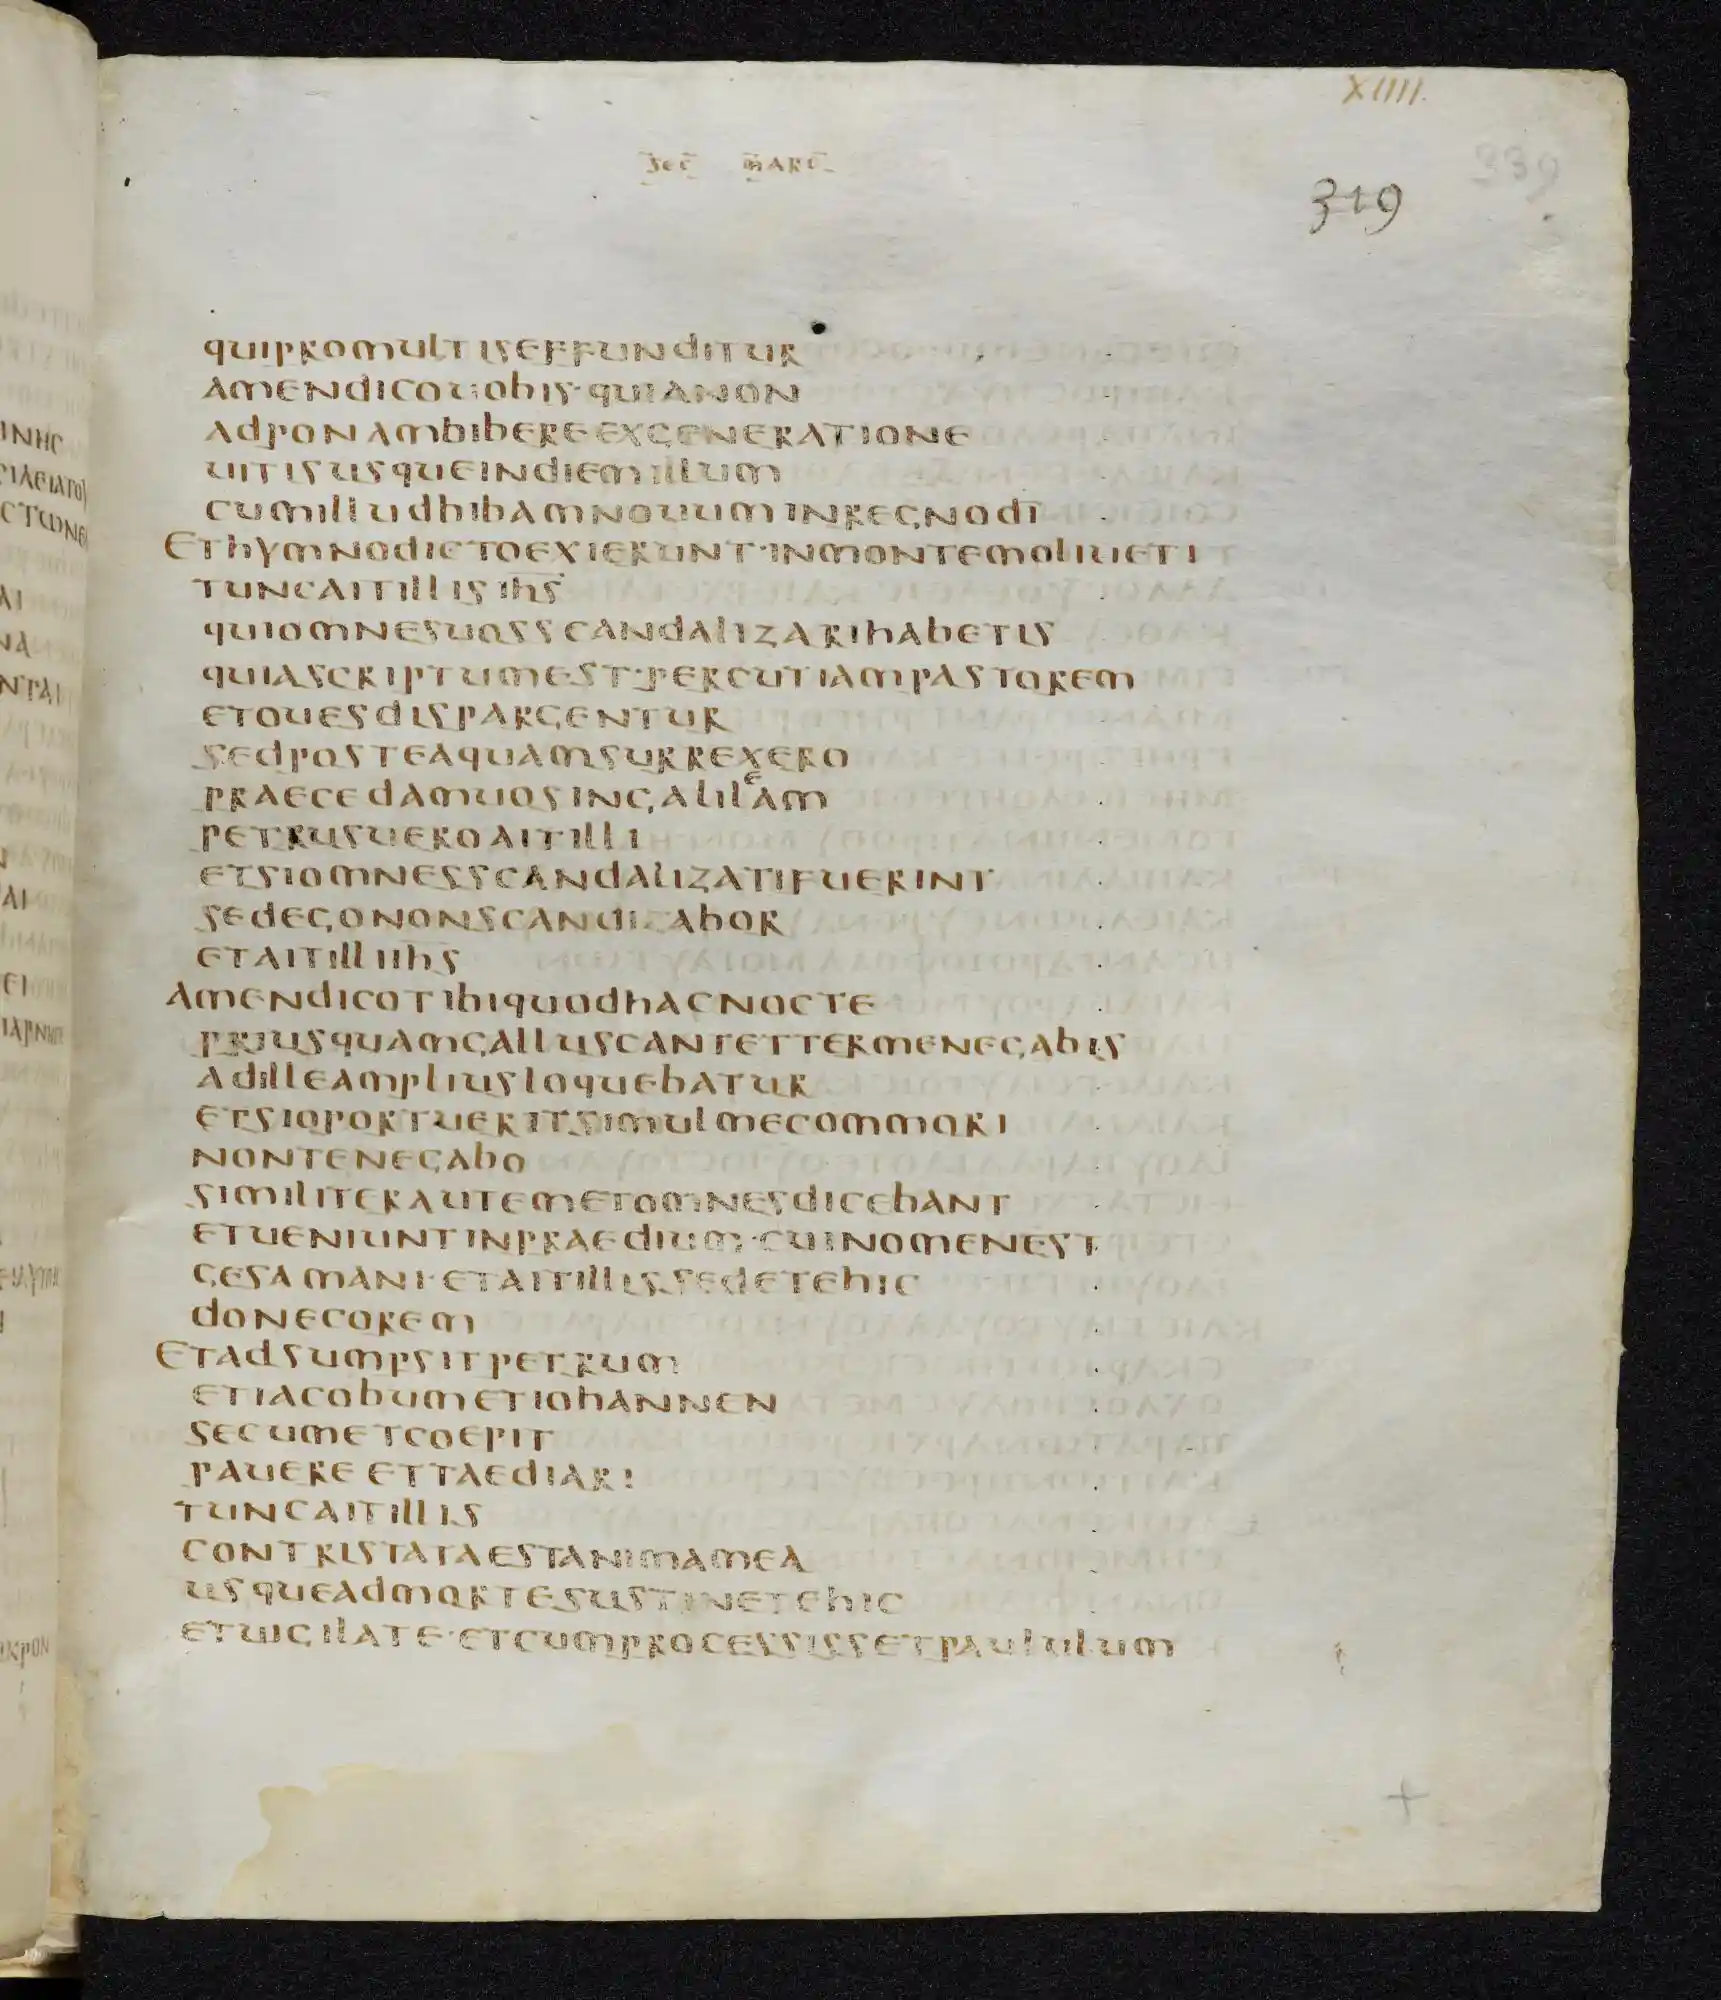 XIIII.
339
s̄ec̄ m̄arc̄
319
quipromultiseffunditur
amendicouobis·quianon
adponambibereexgeneratione
uitisusqueindiemillum
cumilludbibamnouuminregnodī
Ethymnodictoexierunt·inmontemoliueti
tuncaitillisih̄s̄
quiomnesuosscandalizarihabetis
quiascriptumest·percutiampastorem
etouesdispargentur
sedposteaquamsurrexero
praecedamuosingalileam
petrusueroaitilli
etsiomnesscandalizatifuerint
sedegononscandizabor
etaitilliih̄s̄
Amendicotibiquodhacnocte
priusquamgalluscantettermenegabis
adilleampliusloquebatur
etsioportueritsimulmecommori
nontenegabo
similiterautemetomnesdicebant
etueniuntinpraedium·cuinomenest
gesamani·etaitillissedetehic
donecorem
Etadsumpsitpetrum
etiacobumetiohannen
secumetcoepit
pauereettaediari
tuncaitillis
contristataestanimamea
usqueadmortesustinetehic
etuigilate·etcumprocessissetpaululum